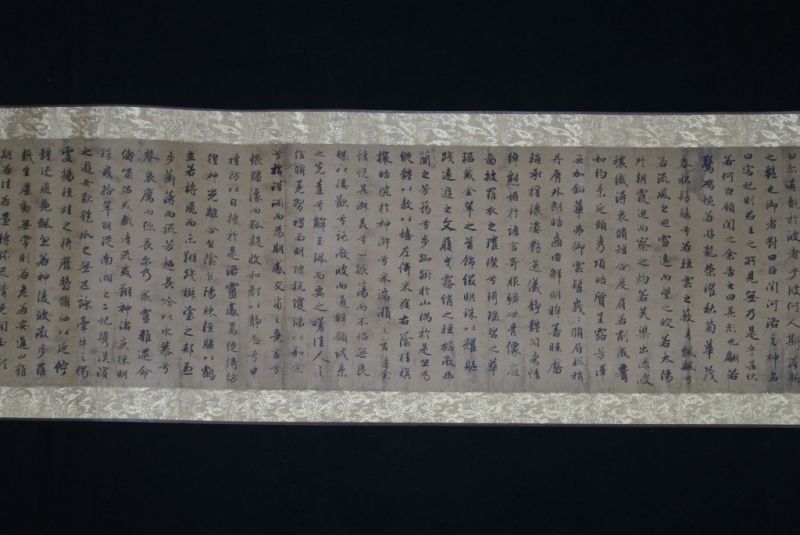 曰爾有覿於彼者乎彼何人斯若此
之艷也御者對曰臣聞河洛之神名
曰宓妃則君王之所見無乃是乎其狀
若何臣願聞之余告之曰其形也翩若
驚鴻婉若遊龍榮曜秋菊華茂
春松髣髴兮若輕雲之蔽月飄颻兮
若流風之迴雪遠而望之皎若太陽
升朝霞迫而察之灼若芙蕖出淥波
穠纖得衷脩短合度肩若削成腰
如約素延頸秀項皓質呈露芳澤
無加鉛華弗御雲髻峩峩脩眉聯娟
丹脣外朗皓齒內鮮明眸善睞靨
輔承權瓌姿艷逸儀靜體閑柔情
綽態媚於語言奇服曠世骨像應
圖披羅衣之璀璨兮珥瑤碧之華
琚戴金翠之首飾綴明珠以耀軀
踐遠遊之文履曳霧綃之輕裾微幽
蘭之芳藹兮步踟躕於山隅於是忽焉
縱體以敖以嬉左倚采旄右蔭桂旗
攘皓腕於神滸兮采湍瀨之玄芝余
情悅其淑美兮心振蕩而不怡無良
媒以接歡兮託微波而通辭願誠素
之先達兮解玉珮而要之嗟佳人之
信脩羌習禮而明詩抗瓊珶以和余
兮指潛淵而為期感交甫之棄言兮
悵猶豫而狐疑收和顏以靜志兮申
禮防以自持於是洛靈感焉徙倚彷
徨神光離合乍陰乍陽竦輕軀以鶴
立若將飛而未翔踐椒塗之郁烈
步蘅薄而流芳超長吟以永慕兮
聲哀厲而彌長爾乃眾靈雜遝命
儔嘯侶或戲清流或翔神渚或採明
珠或拾翠羽從南湘之二妃攜漢濱
之遊女歎匏瓜之無匹詠牽牛之獨
處揚輕袿之猗靡翳脩袖以延佇
體迅飛鳧飄忽若神陵波微步羅
襪生塵動無常則若危若安進止難
期若往若還轉眄流精光潤玉